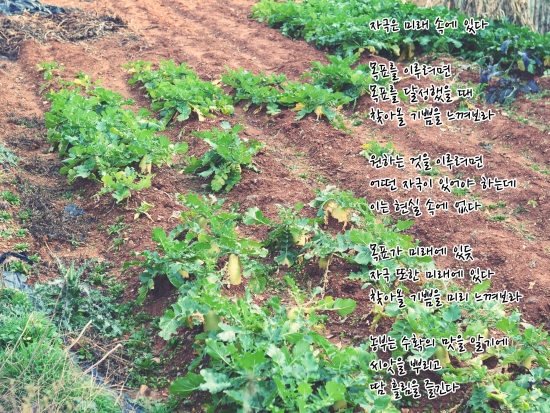 자극은 미래 속에 있다
목표를 이루려면
목표를 달성했을 때
찾아올 기쁨을 느껴보라
원하는 것을 이루려면
어떤 자극이 있어야 하는데
이는 현실 속에 없다
목표가 미래에 있듯
자극 또한 미래에 있다
찾아올 기쁨을 미리 느껴보라
농부는 수확의 맛을 알기에
씨앗을 뿌리고
땀 흘림을 즐긴다